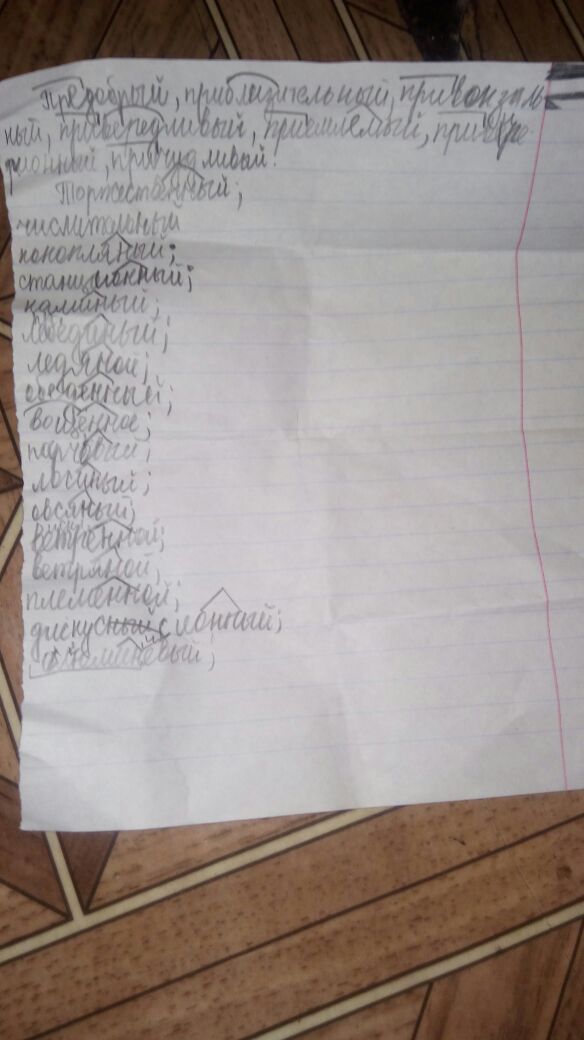 Предобрый, приблизительный, привокзаль-
ный, привередливый, приемлемый, при
ный, причудливый.
Торжественный;
числительный
конопляный;
станционный;
каминый;
лебединый;
ледяной;
обеденный;
вощённое;
лосиный;
овсяный;
ветренной;
ветряной;
племенной;
дискусный сионный;
алюминевый;